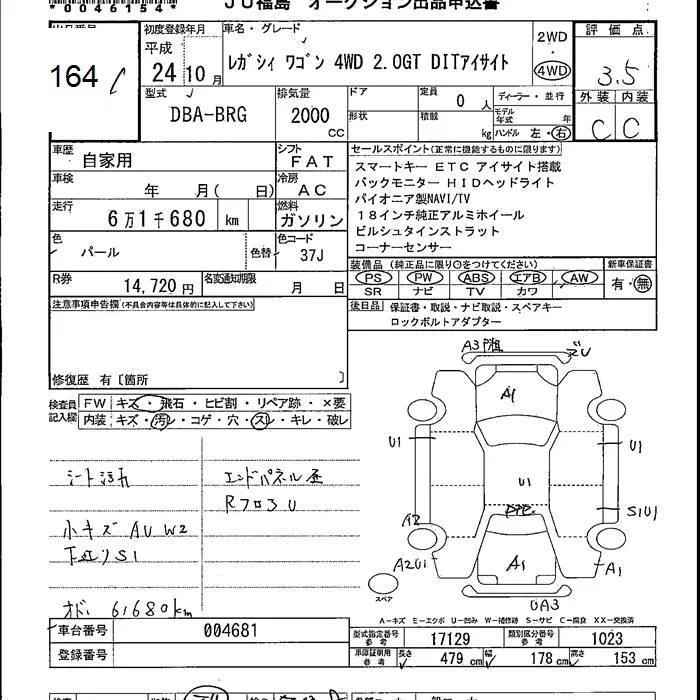 *0046154*
JU福島 オークション出品申込書
164
初度登録年月
平成
24年10月
車名・グレード
レガシィ ワゴン 4WD 2.0GT DITアイサイト
2WD
4WD
評価点
3.5
外装 内装
C C
型式
DBA-BRG
排気量
2000
CC
ドア
形状
定員
0 人
積載
kg
ディーラー・並行
モデル年式 年
ハンドル 左・右
車歴
自家用
シフト
FAT
車検
年 月( 日)
冷房
AC
走行
6万1千680 km
燃料
ガソリン
色
パール
色替
色コード
37J
R券
14,720円
名変通知期限
月 日
セールスポイント(正常に機能するものに限ります)
スマートキー ETC アイサイト搭載
バックモニター HIDヘッドライト
パイオニア製NAVI/TV
18インチ純正アルミホイール
ビルシュタインストラット
コーナーセンサー
装備品(純正品に限り○をつけてください)
新車保証書
PS PW ABS エアB AW
SR ナビ TV カワ
有・無
後日品 保証書・取説・ナビ取説・スペアキー
ロックボルトアダプター
注意事項申告欄(不具合内容等は具体的に記入して下さい)
修復歴 有〔箇所 〕
検査員記入欄
FW キズ・飛石・ヒビ割・リペア跡・×要
内装 キズ・汚レ・コゲ・穴・スレ・キレ・破レ
シート汚れ
エンドパネル歪
RフロアU
小キズ AU W2
下廻りS1
オド 61680km
A3
ズU
A1
U1
U1
U1
S1U1
A2
A2U1
A1
A1
UA3
スペア
A-キズ E-エクボ U-凹み W-補修跡 S-サビ C-腐食 XX-交換済
車台番号
004681
登録番号
型式指定番号 参考
17129
類別区分番号 参考
1023
車庫証明用 参考
長さ 479cm 幅 178cm 高さ 153cm